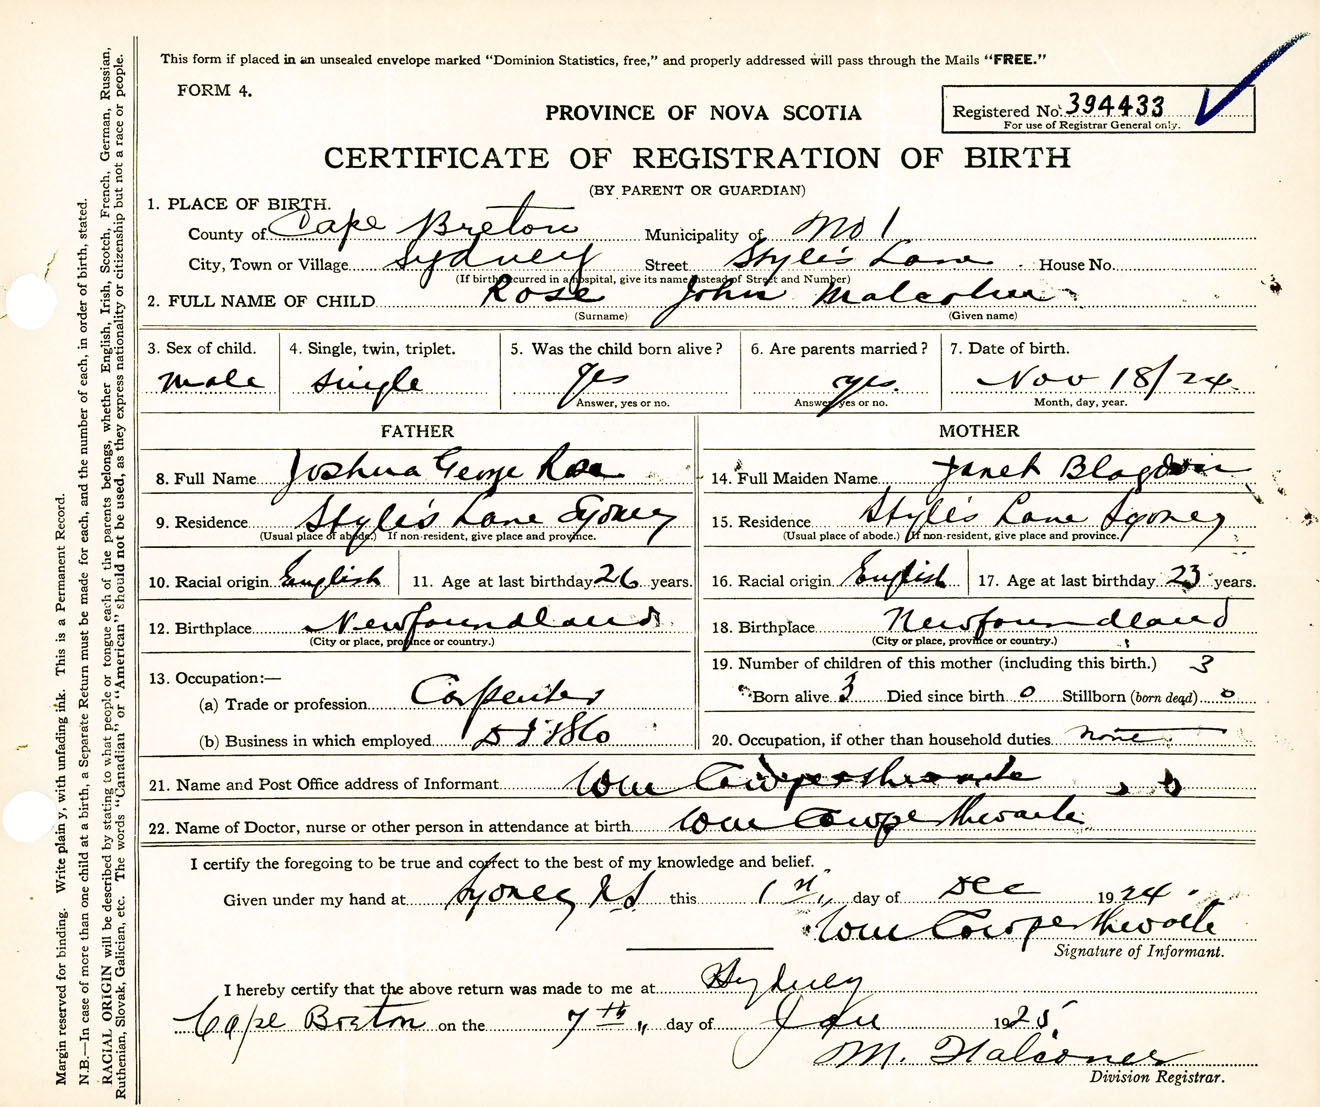 This form if placed in an unsealed envelope marked "Dominion Statistics, free," and properly addressed will pass through the Mails "FREE."
FORM 4.
PROVINCE OF NOVA SCOTIA
Registered No. 394433
For use of Registrar General only.
CERTIFICATE OF REGISTRATION OF BIRTH
(BY PARENT OR GUARDIAN)
1. PLACE OF BIRTH.
County of Cape Breton Municipality of No 1
City, Town or Village Sydney Street Style's Lane House No.
(If birth occurred in a hospital, give its name instead of Street and Number)
2. FULL NAME OF CHILD Rose John Malcolm
(Surname) (Given name)
3. Sex of child. 4. Single, twin, triplet. 5. Was the child born alive? 6. Are parents married? 7. Date of birth.
Male Single Yes yes. Nov 18/24
Answer, yes or no. Answer, yes or no. Month, day, year.
FATHER MOTHER
8. Full Name Joshua George Rose 14. Full Maiden Name Janet Blagdon
9. Residence Style's Lane Sydney 15. Residence Style's Lane Sydney
(Usual place of abode.) If non-resident, give place and province. (Usual place of abode.) If non-resident, give place and province.
10. Racial origin English 11. Age at last birthday 26 years. 16. Racial origin English 17. Age at last birthday 23 years.
12. Birthplace Newfoundland 18. Birthplace Newfoundland
(City or place, province or country.) (City or place, province or country.)
13. Occupation:— 19. Number of children of this mother (including this birth.) 3
(a) Trade or profession Carpenter Born alive 3 Died since birth 0 Stillborn (born dead) 0
(b) Business in which employed 20. Occupation, if other than household duties none
21. Name and Post Office address of Informant Wm Cowperthwaite
22. Name of Doctor, nurse or other person in attendance at birth Wm Cowperthwaite
I certify the foregoing to be true and correct to the best of my knowledge and belief.
Given under my hand at Sydney N.S. this 1st day of Dec 1924.
Wm Cowperthwaite
Signature of Informant.
I hereby certify that the above return was made to me at Sydney
Cape Breton on the 7th day of Jan 1925.
M. Falconer
Division Registrar.
Margin reserved for binding. Write plainy, with unfading ink. This is a Permanent Record.
N.B.—In case of more than one child at a birth, a Separate Return must be made for each, and the number of each, in order of birth, stated.
RACIAL ORIGIN will be described by stating to what people or tongue each of the parents belongs, whether English, Irish, Scotch, French, German, Russian,
Ruthenian, Slovak, Galician, etc. The words "Canadian" or "American" should not be used, as they express nationality or citizenship but not a race or people.